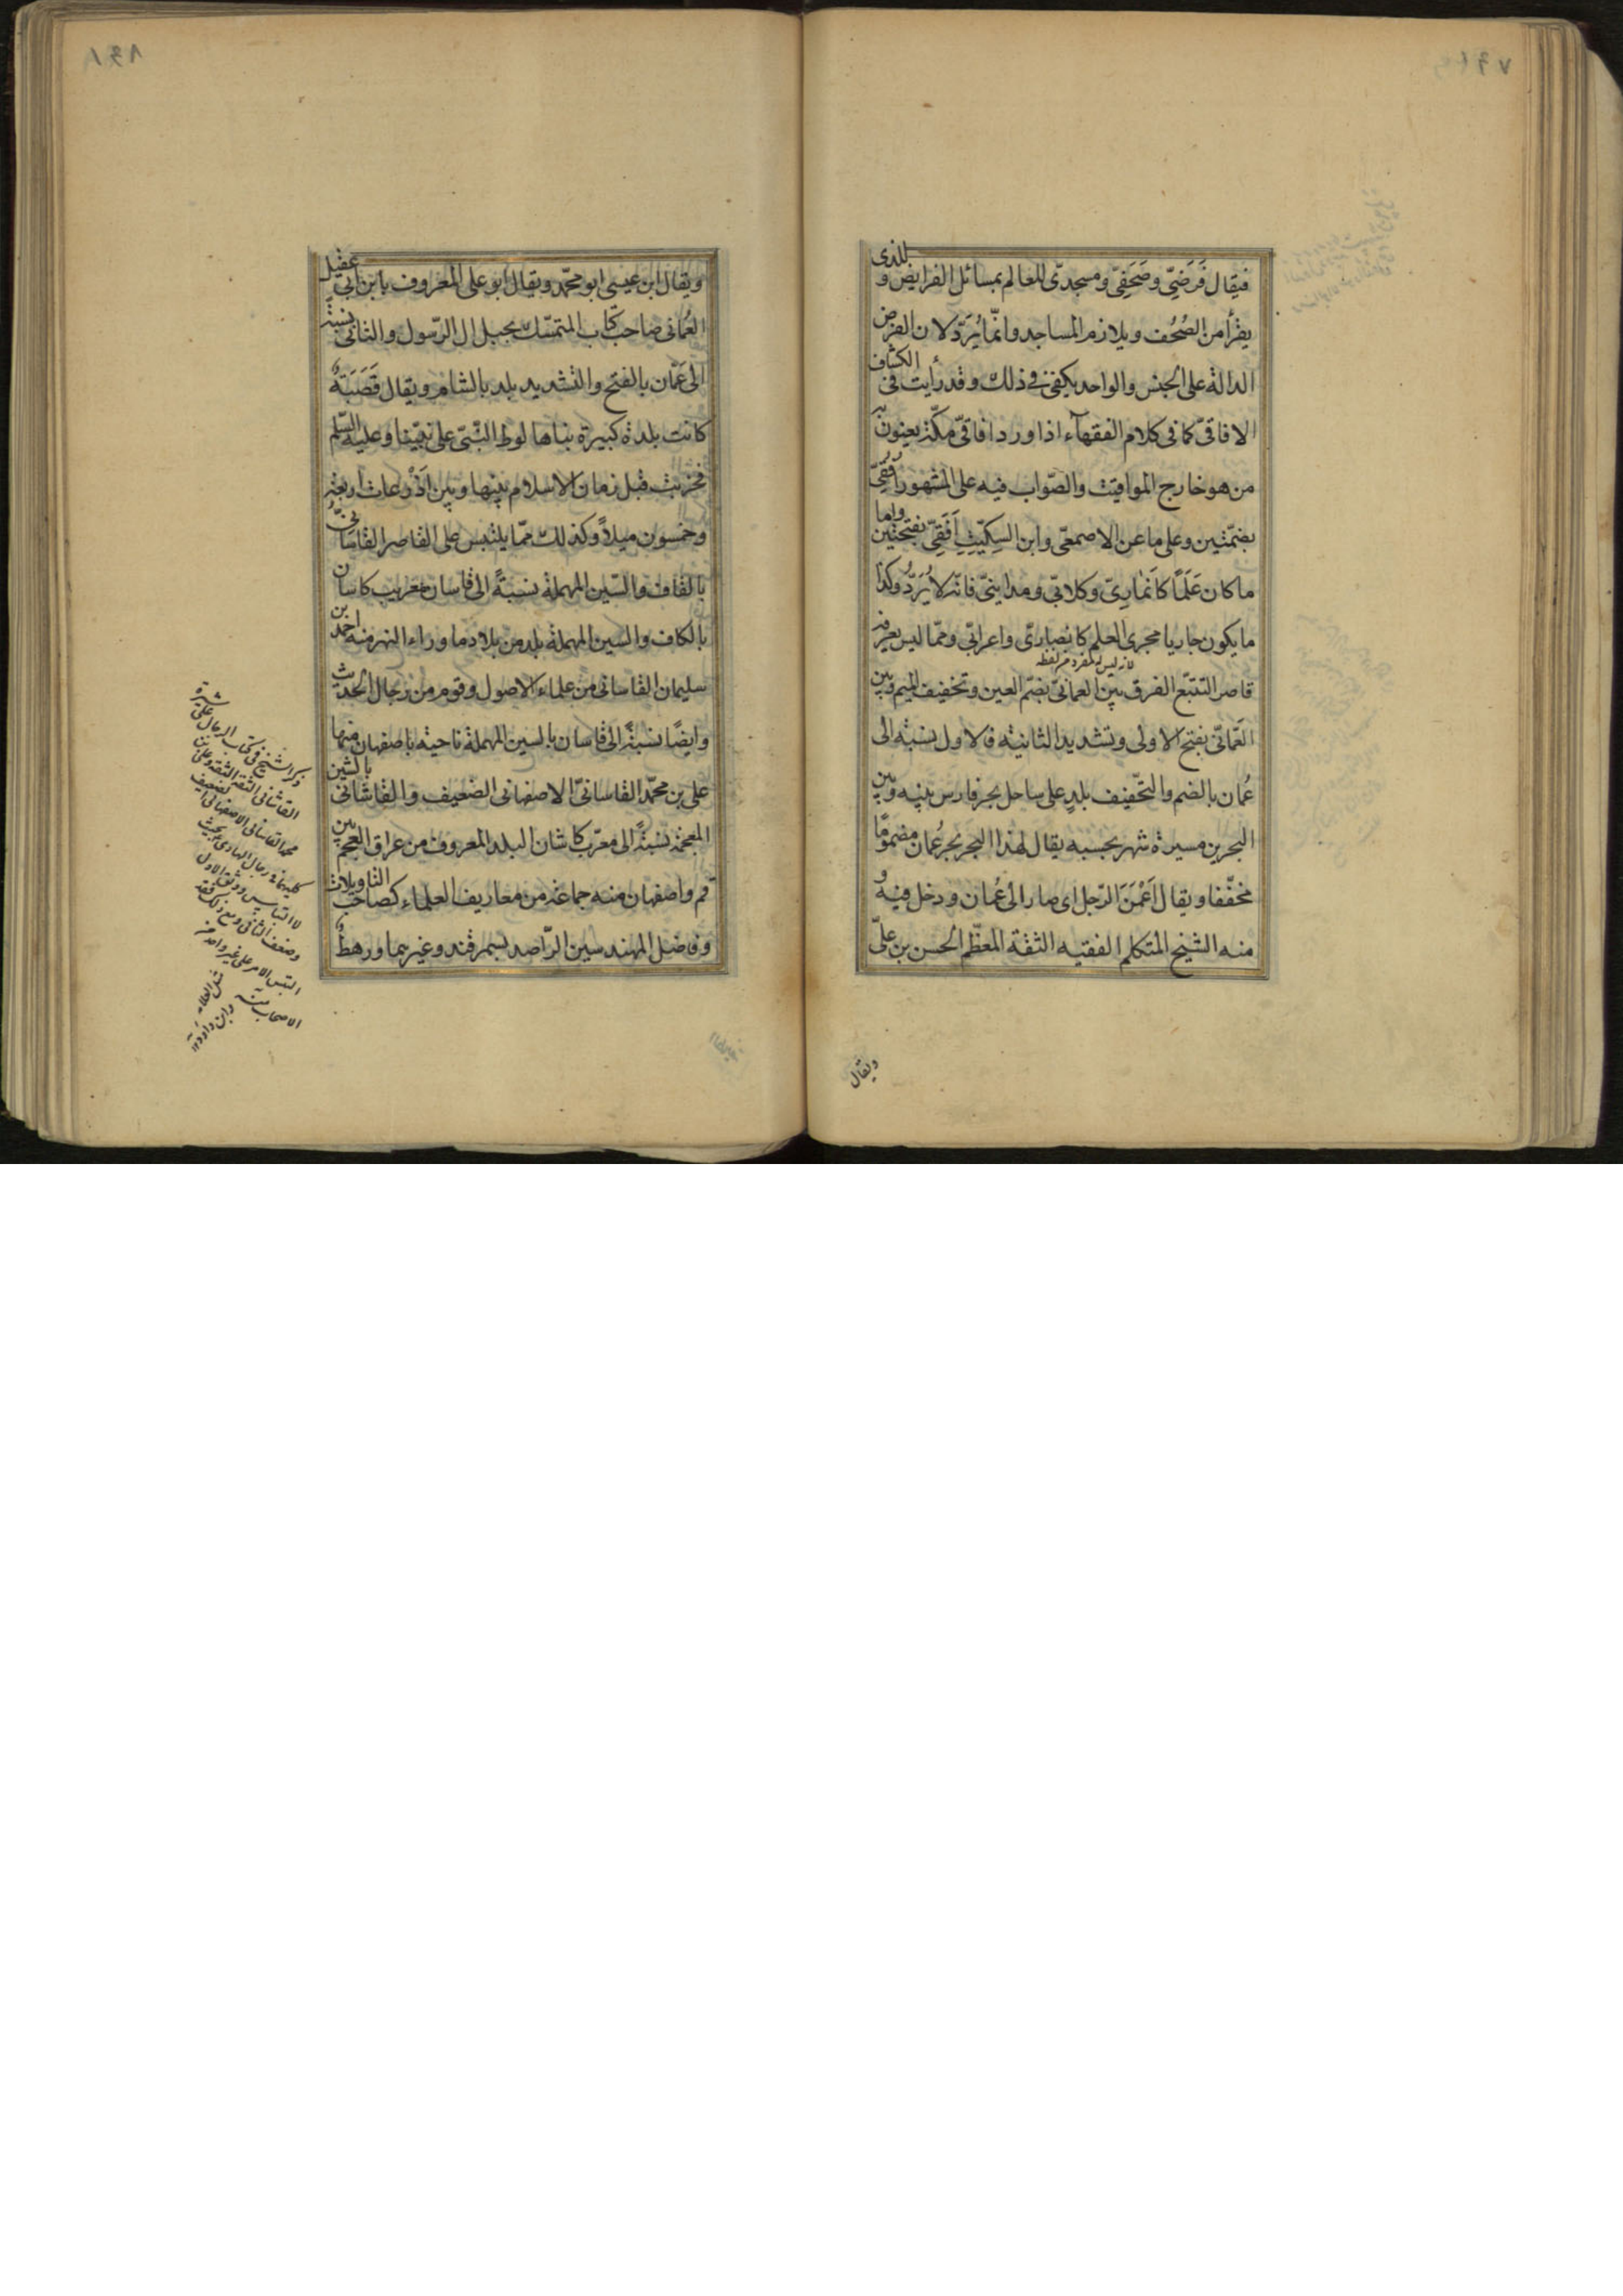 فيقال فَرَضِيّ وصَحَفِيّ ومسجدىّ للعالم بمسائل الفرايض و للذى
يقرأ من الصُحُف ويلازم المساجد وانّما يُرَدّ لان الغرض
الدالة على الجنس والواحد يكفى فى ذلك وقد رأيت فى الكشاف
الافاقىّ كما فى كلام الفقهاء اذا ورد افاقىّ مكّة يعنون به
من هو خارج المواقيت والصّواب فيه على المشهور اُفُقِىّ
بضمّتين وعلى ما عن الاصمعى وابن السِكّيتِ اَفَقِىّ بفتحتين واما
ما كان عَلَمًا كاَنمارِىّ وكلابّى ومداينىّ فانّه لا يُرَدُّ وكذا
ما يكون جاريا مجرى العلم كانصارىّ واعرابّى وممّا ليس يعرفه
لانه ليس له مفرد من لفظه
قاصر التتبّع الفرق بين العمانىّ بضمّ العين وتخفيف الميم وبين
العَمّانىّ بفتح الاولى وتشديد الثانية فالاول نسبة الى
عُمان بالضم والتخفيف بلدٍ على ساحل بحر فارس بينه وبين
البحرين مسيرة شهر بحسبه يقال لهذا البحر بحر عُمان مضمومًا
مخفّفا ويقال اَعْمَنَ الرّجل اى صار الى عُمان ودخل فيه و
منه الشيخ المتكلم الفقيه الثقة المعظّم الحسن بن علىّ
ويقال
ويقال ابن عيسى ابو محمّد ويقال ابو على المعروف بابن ابى عقيل
العُمانى صاحب كتاب المتمسّك بحبل ال الرّسول والثانى نسبة
الى عَمّان بالفتح والتشديد بلد بالشام ويقال قَصَبَة
كانت بلدة كبيرة بناها لوط النّبىّ على نبيّنا وعليه السّلم
فخربت قبل زمان الاسلام بينها وبين اَذْرعات اربعة
وخمسون ميلاً وكذلك ممّا يلتبس على القاصر القاسانىّ
بالقاف والسّين المهملة نسبةً الى قاسان معرب كاسان
بالكاف والسين المهملة بلد من بلاد ما وراء النهر منه احمد بن
سليمان القاسانى من علماء الاصول وقوم من رجال الحديث
وايضًا نسبةً الى قاسان بالسين المهملة ناحية باصفهان منها
على بن محمّد القاسانىّ الاصفهانى الضعيف والقاشانى بالشين
المعجمة نسبةً الى معرّب كاشان البلد المعروف من عراق العجم بين
قم واصفهان منه جماعة من معاريف العلماء كصاحب التاويلات
وفاضل المهندسين الرّاصد بسمرقند وغيرهما ورهط
ذكر الشيخ فى كتاب الرجال على بن شيرة
القاشانى الثقة الثقة وعلى بن
محمد القاسانى الاصفهانى الضعيف
كليهما فى رجال الهادى بحيث
لا التباس ووثق الاول
وضعف الثانى ومع ذلك فقد
التبس الامر على غير واحد من
الاصحاب منه
وابن داود